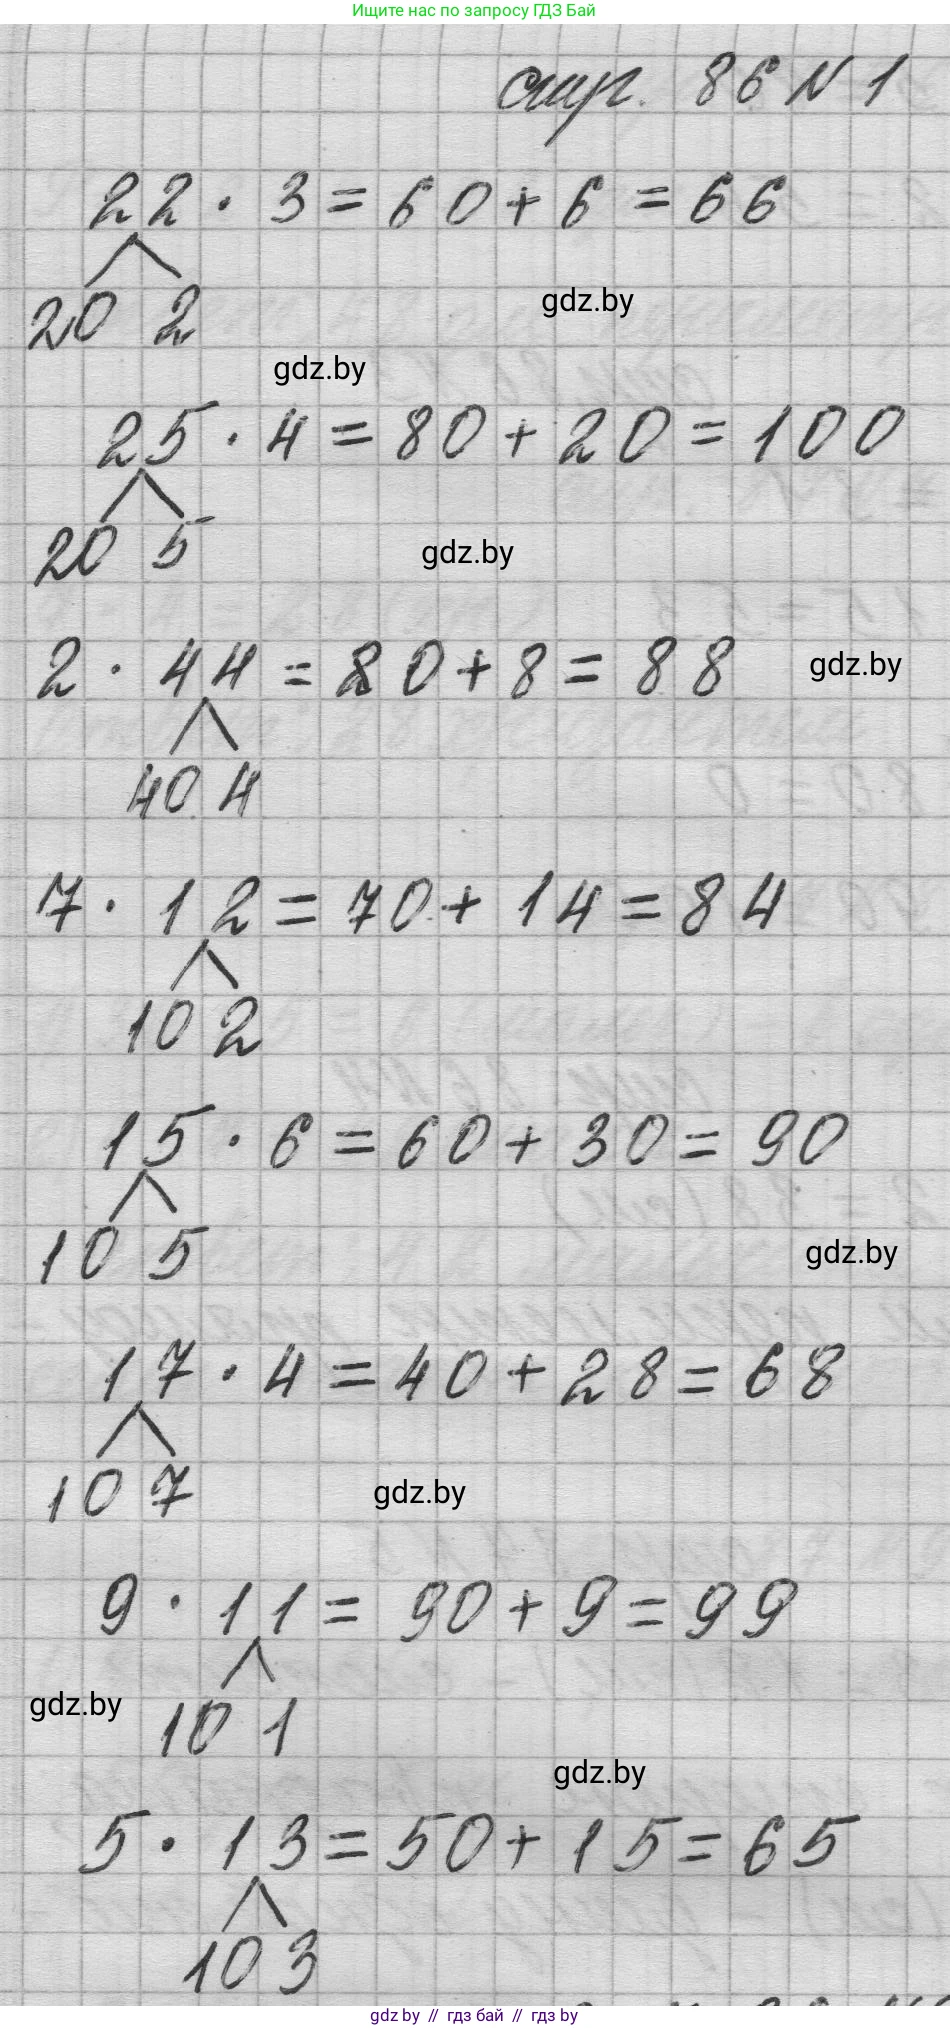 Ищите нас по запросу ГДЗ Бай
стр. 86 N 1
22 · 3 = 60 + 6 = 66
20 2
gdz.by
gdz.by
25 · 4 = 80 + 20 = 100
20 5
gdz.by
2 · 44 = 80 + 8 = 88
gdz.by
40 4
7 · 12 = 70 + 14 = 84
10 2
15 · 6 = 60 + 30 = 90
10 5
gdz.by
17 · 4 = 40 + 28 = 68
10 7
gdz.by
9 · 11 = 90 + 9 = 99
gdz.by
10 1
gdz.by
5 · 13 = 50 + 15 = 65
10 3
gdz.by // гдз бай // гдз by